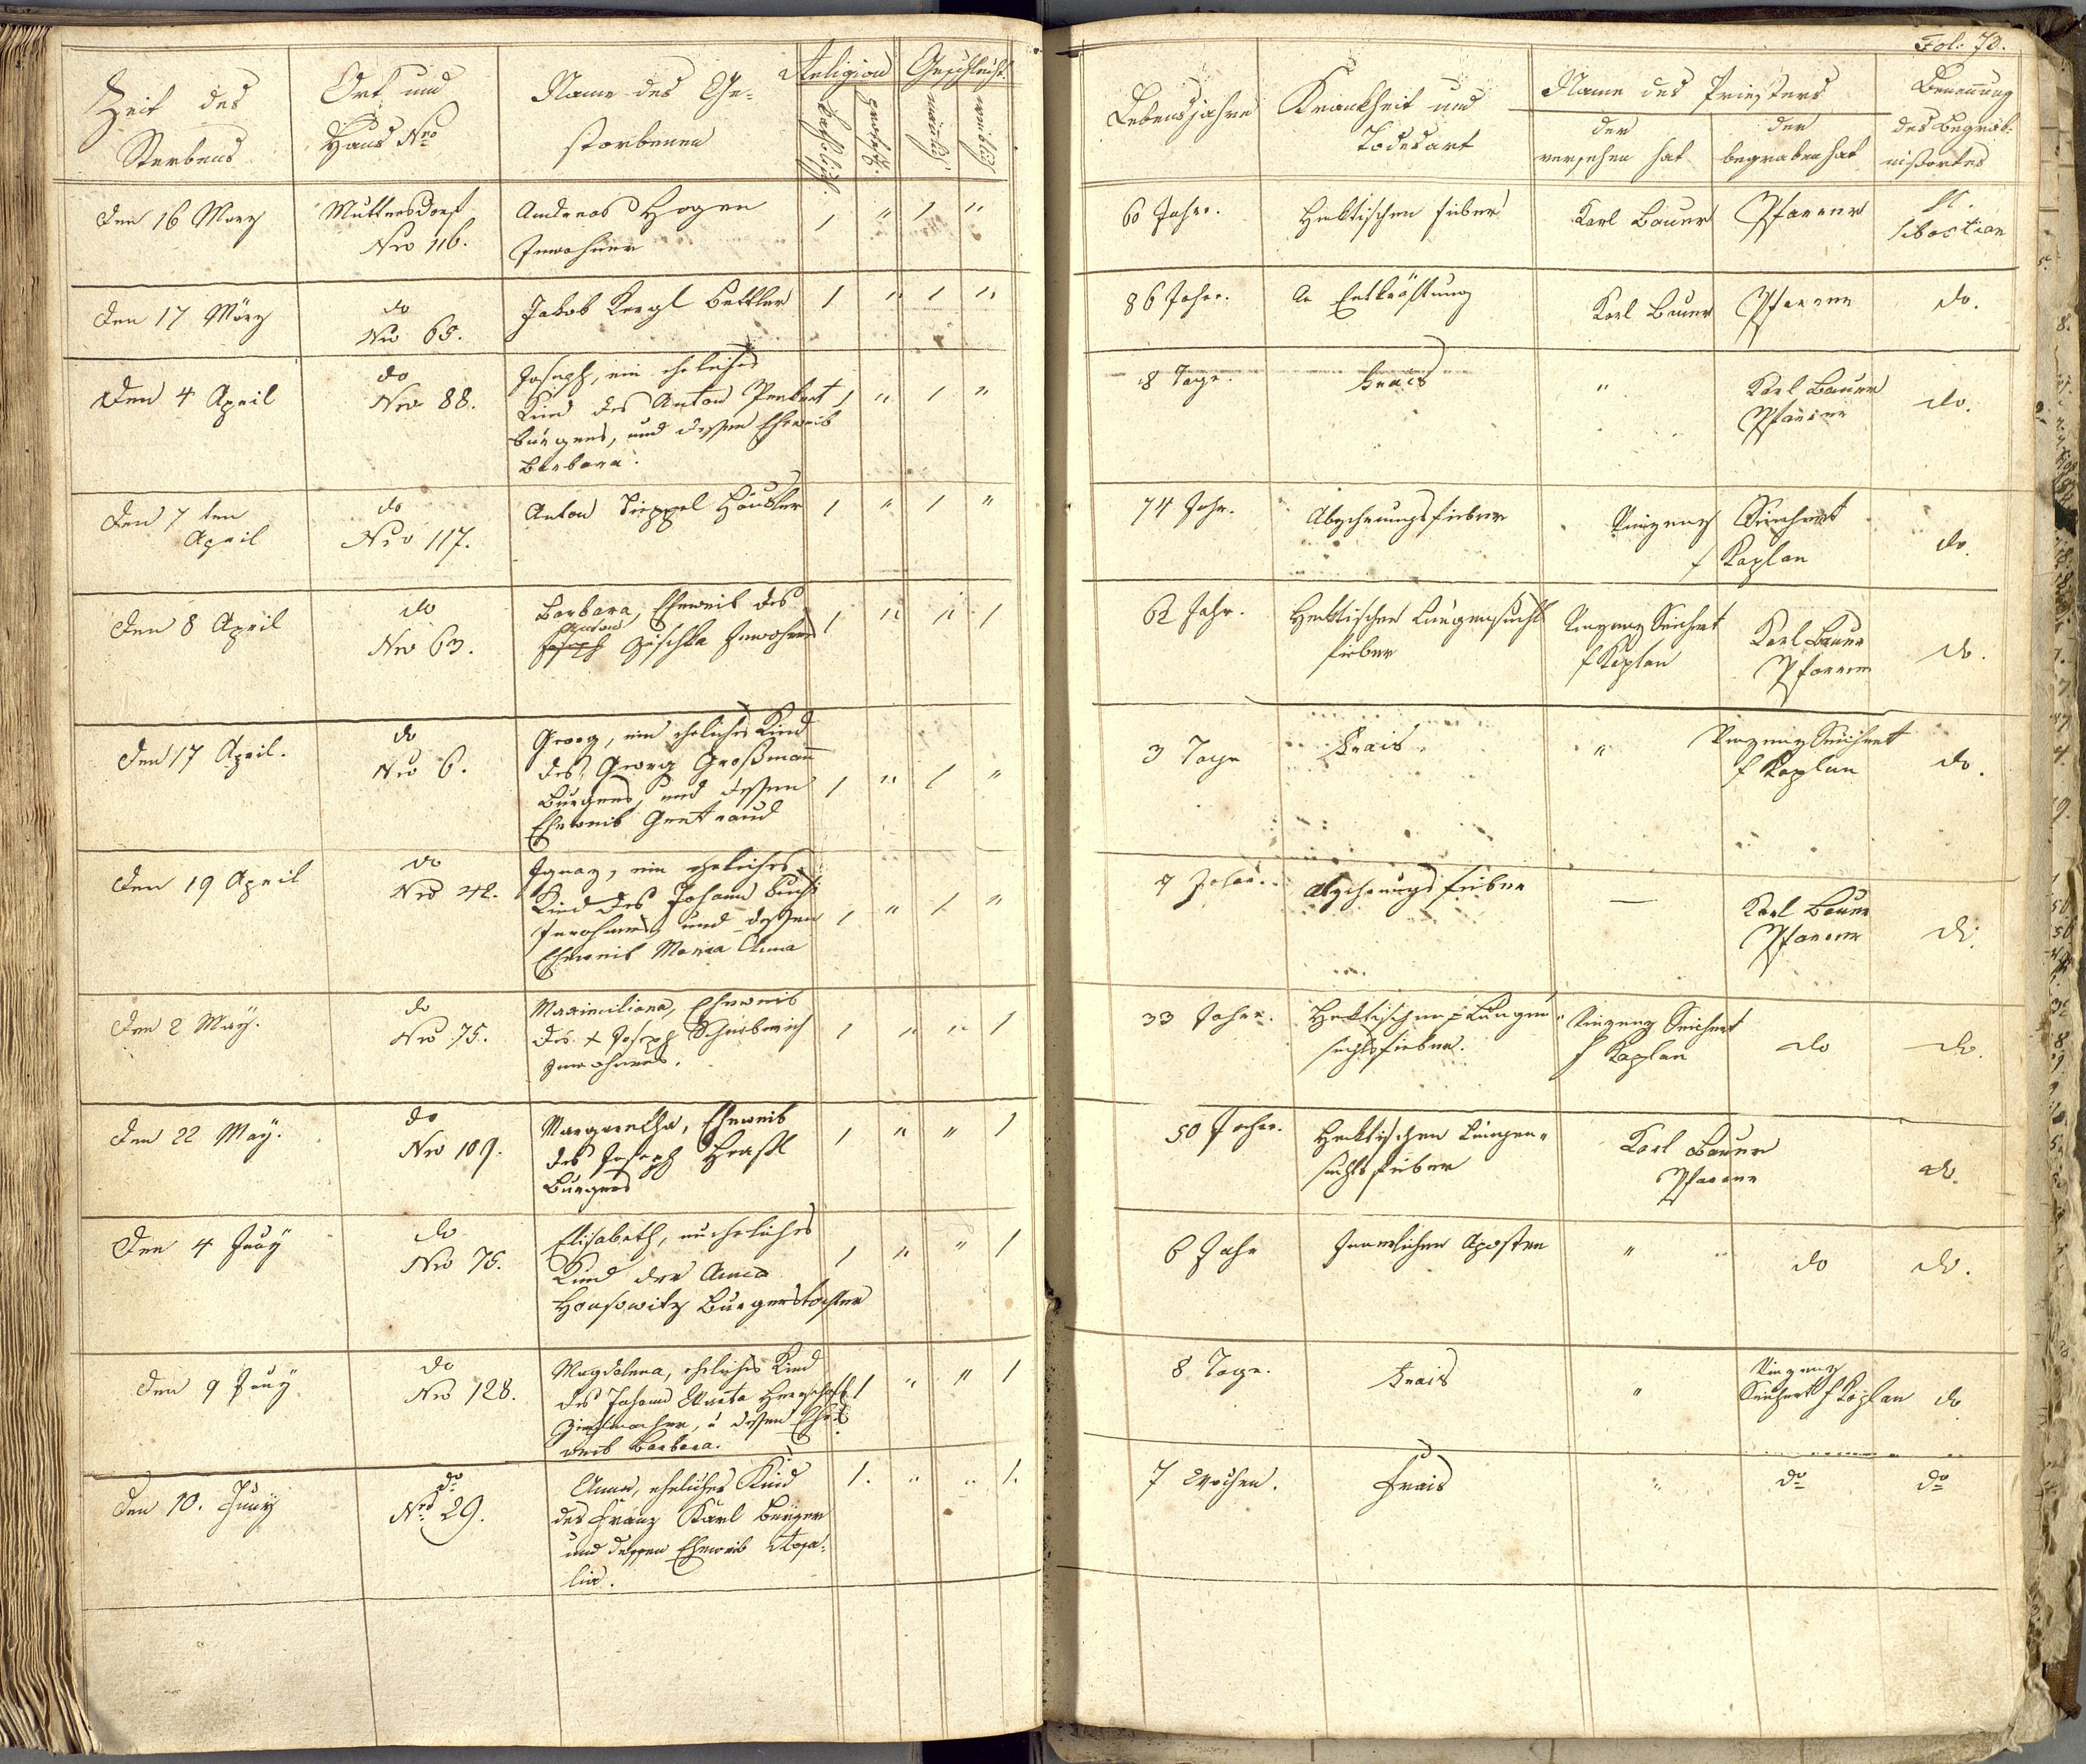 Fol: 70.
Zeit des Sterbens
Ort und Haus Nro
Name des Ge-
storbenen
Religion
katholisch.
protest.
Geschlecht.
männl.
weiblich
Lebensjahre
Krankheit und
Todesart
Name des Priesters
der
versehen hat
der
begraben hat
Benennung
des Begräb-
nißortes
Den 16 März
Muttersdorf
Nro 116.
Andreas Hozer
Inwohner
1 " 1 "
60 Jahr.
Hecktischen fieber
Karl Bauer
Pfarrer
St.
Sebastian
Den 17 März
do
No 65.
Jakob Kergl Bettler
1 " 1 "
86 Jahr.
An Entkräftung
Karl Bauer
Pfarrer
do.
Den 4 April
do
Nro 88.
Joseph, ein eheliches
Kind des Anton
Bürgers, und dessen Eheweib
Barbara.
1 " 1 "
8 Tage.
Frais
"
Karl Bauer
Pfarrer
do.
Den 7ten
April
do
Nro 117.
Anton Tippel Häusler
1 " 1 "
74 Jahr.
Abzehrungsfieber
Vinzenz Seichert
Kaplan
do.
Den 8 April
do
Nro 63.
Barbara, Eheweib des
Anton
Joseph Zischka Inwohner
1 " " 1
62 Jahr.
Hecktischer Lungensucht
fieber
Vinzenz Seichert
Kaplan
Karl Bauer
Pfarrer
do.
Den 17 April.
do
Nro 6.
Georg, ein eheliches Kind
des Georg Großmann
Bürgers, und dessen
Eheweib Gertraud
1 " 1 "
3 Tage
Frais.
"
Vinzenz Seichert
Kaplan
do.
Den 19 April
do
Nro 42.
Ignaz, ein eheliches
Kind des Johann
Inwohners, und dessen
Eheweib Maria Anna
1 " 1 "
Jahr.
Abzehrungsfieber
—
Karl Bauer
Pfarrer
do.
Den 2 May.
do
Nro 75.
Maximiliana, Eheweib
des + Joseph
Inwohners.
1 " " 1
33 Jahr.
Hecktischen Lungen-
suchtsfieber.
Vinzenz Seichert
Kaplan
do
do.
Den 22 May.
do
Nro 109.
Margaretha, Eheweib
des Joseph
Bürgers
1 " " 1
50 Jahr.
Hecktischen Lungen-
suchtsfieber
Karl Bauer
Pfarrer
do.
Den 4 Juny
do
Nro 75.
Elisabeth, uneheliches
Kind der Anna
Bürgerstochter
1 " " 1
6 Jahr
Innerlichen Aposten
"
do
do.
Den 9 Juny
do
Nro 128.
Magdalena, eheliches Kind
des Johann
u dessen Ehe-
weib Barbara.
1 " " 1
8 Tage.
Frais
"
Vinzenz
Seichert Kaplan
do
Den 10. Juny
do
Nro 29.
Anna, eheliches Kind
des Franz Karl Bürger
und dessen Eheweib Rosa-
lia.
1. " " 1.
7 Wochen.
Frais
"
do
do